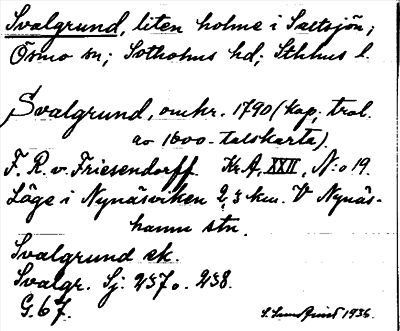 Svalgrund, liten holme i Saltsjön;
Ösmo sn; Sotholms hd; Sthlms l.
Svalgrund, omkr. 1790 (kop. trol.
av 1600-talskarta).
F. R. v. Friesendorff Kr.A, XXII, N:o 19.
Läge i Nynäsviken 2,3 km. V Nynäs-
hamn stn.
Svalgrund ek.
Svalgr. Sj. 237 o. 238.
G. 67.
1936